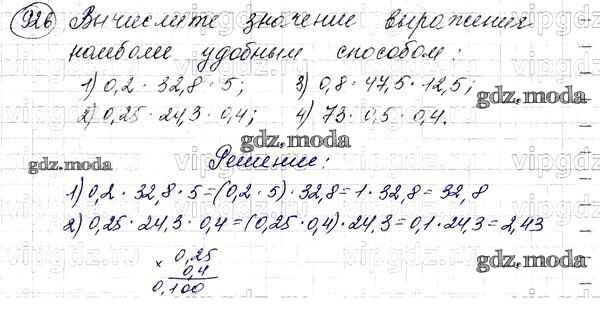 926 Вычислите значение выражения
наиболее удобным способом:
1) 0,2 · 32,8 · 5; 3) 0,8 · 47,5 · 12,5;
gdz.moda
2) 0,25 · 24,3 · 0,4; 4) 73 · 0,5 · 0,4.
gdz.moda
Решение:
gdz.moda
1) 0,2 · 32,8 · 5 = (0,2 · 5) · 32,8 = 1 · 32,8 = 32,8
2) 0,25 · 24,3 · 0,4 = (0,25 · 0,4) · 24,3 = 0,1 · 24,3 = 2,43
× 0,25
0,4
0,100
gdz.moda